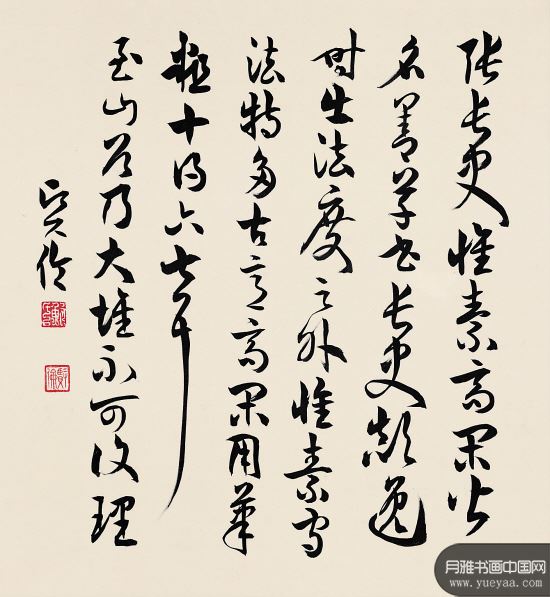 張長史懷素高閑皆
名善草書長史顛逸
時出法度之外懷素守
法特多古意高閑用筆
粗十得六七耳
至山谷乃大壞不可復理
月雅书画中国网
www.yueyaa.com